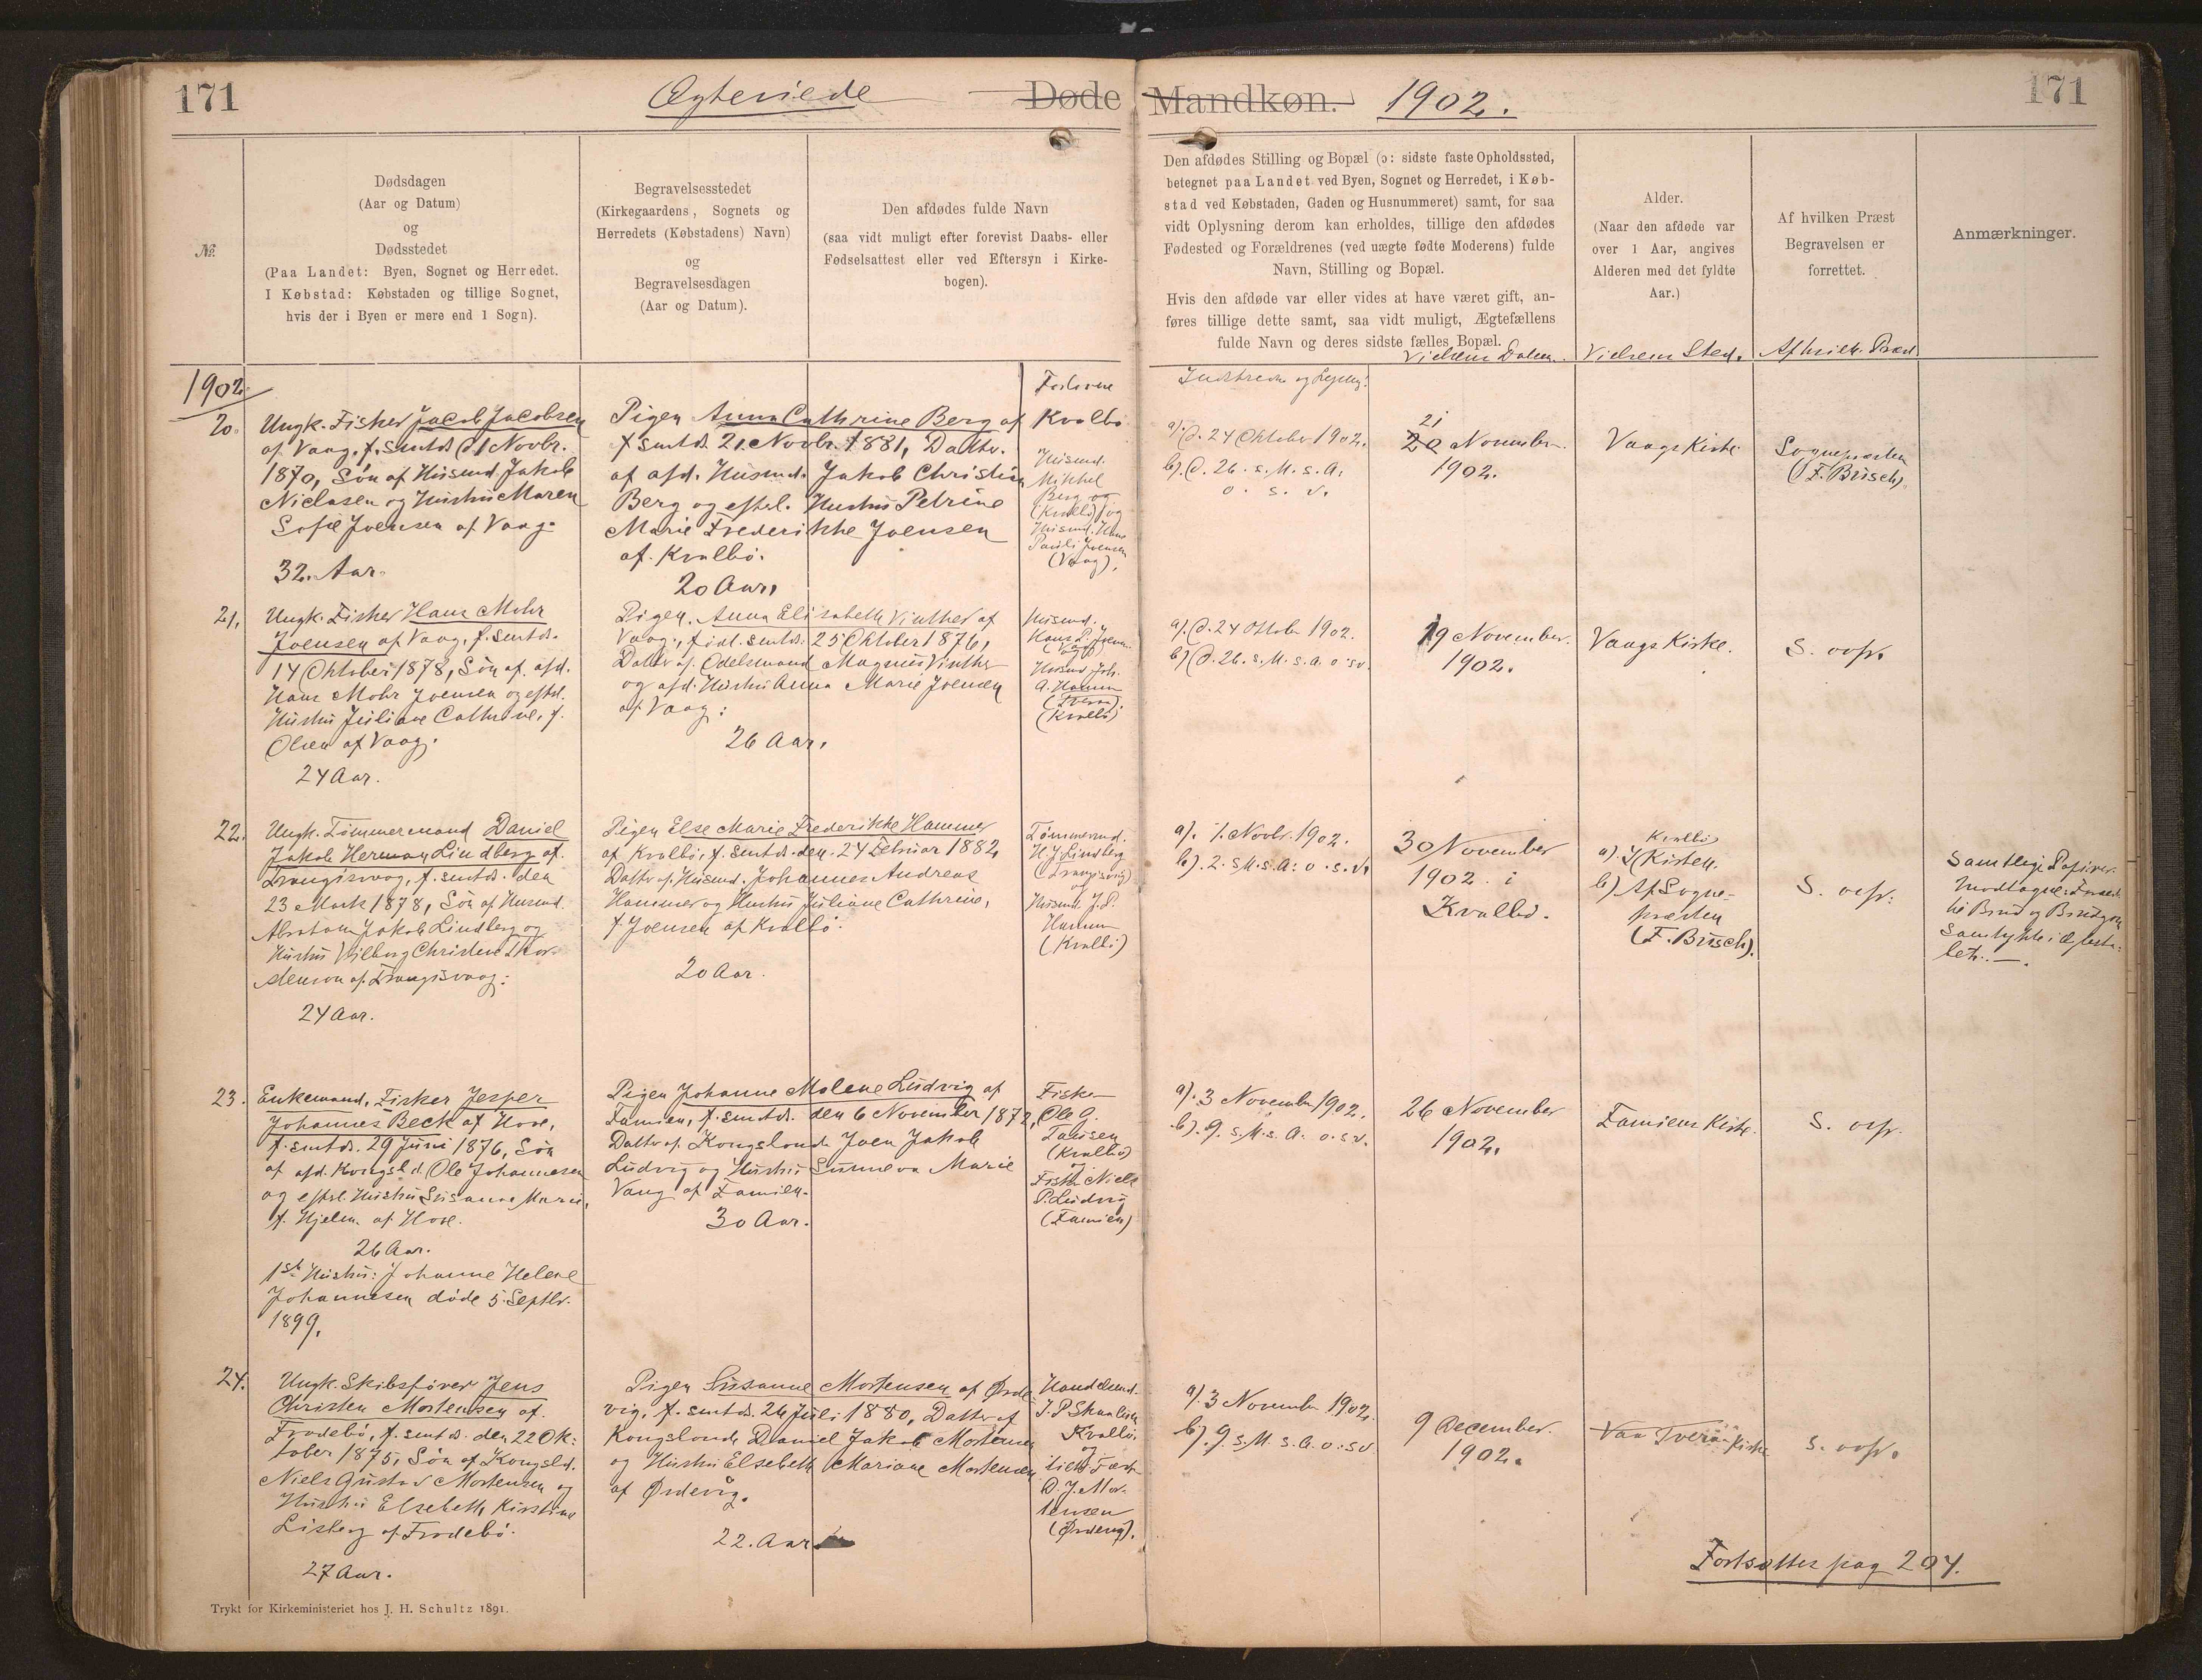 171
Ægteviede
Døde
Mandkøn.
1902.
171
№
Dødsdagen
(Aar og Datum)
og
Dødsstedet
(Paa Landet: Byen, Sognet og Herredet.
I Købstad: Købstaden og tillige Sognet,
hvis der i Byen er mere end 1 Sogn).
Begravelsesstedet
(Kirkegaardens, Sognets og
Herredets (Købstadens) Navn)
og
Begravelsesdagen
(Aar og Datum).
Den afdødes fulde Navn
(saa vidt muligt efter forevist Daabs- eller
Fødselsattest eller ved Eftersyn i Kirke-
bogen).
Den afdødes Stilling og Bopæl (ɔ: sidste faste Opholdssted,
betegnet paa Landet ved Byen, Sognet og Herredet, i Køb-
stad ved Købstaden, Gaden og Husnummeret) samt, for saa
vidt Oplysning derom kan erholdes, tillige den afdødes
Fødested og Forældrenes (ved uægte fødte Moderens) fulde
Navn, Stilling og Bopæl.
Hvis den afdøde var eller vides at have været gift, an-
føres tillige dette samt, saa vidt muligt, Ægtefællens
fulde Navn og deres sidste fælles Bopæl.
Alder.
(Naar den afdøde var
over 1 Aar, angives
Alderen med det fyldte
Aar.)
Af hvilken Præst
Begravelsen er
forrettet.
Anmærkninger.
Vielsens Sted.
Af hvilk. Præst
1902.
Forlovere
20.
Ungk. Fisker Jacob Jacobsen
af Vaag, f. smtds. 21 Novbr.
1870, Søn af Husmd. Jakob
Niclasen og Hustru Maren
Sofie Joensen af Vaag.
32. Aar.
Pigen Anna Cathrine Berg af Kvalbø
f smtds. 21. Novbr. 1881, Dattr.
af afd. Husmd. Jakob Christian
Berg og efterl. Hustru Petrine
Marie Frederikke Joensen
af Kvalbø.
20 Aar.
Husmd.
Mikkel
Berg og
(Kvalbø) og
Husmd. Hans
Pauli Joensen
(Vaag).
a). d. 24 Oktober 1902.
b). d. 26. s. M. s. A.
o. s. v.
21
20 November
1902.
Vaags Kirke
Sognepræsten
(F. Bùsch)
21.
Ungk. Fisker Hans Mohr
Joensen af Vaag, f. smtds.
14 Oktober 1878, Søn af afd.
Hans Mohr Joensen og efterl.
Hustru Juliane Cathrine, f.
Olsen af Vaag.
24 Aar.
Pigen Anna Elisabeth Vinther af
Vaag, født smtds. 25 Oktober 1876,
Dattr af Odelsmand Magnus Vinther
og afd. Hustru Anna Marie Joensen
af Vaag:
26 Aar.
Husmd.
Husmd Joh.
(Kvalbø)
a). d. 24 Oktober 1902.
b) d. 26. s. M. s. A. o. sv.
19 November.
1902.
Vaags Kirke.
S. ovfr.
22.
Ungk. Tømmermand Daniel
Jakob Herman Lindberg af
Trangisvaag, f. smtds. den
23 Marts 1878, Søn af Husmd.
Abraham Jakob Lindberg og
Hustru Vilborg Christine Thor-
af Trangisvaag:
24 Aar.
Pigen Else Marie Frederikke Hammer
af Kvalbø, f. smtds. den 24 Februar 1882
Dattr af Husmd. Johannes Andreas
Hammer og Hustru Juliane Cathrine,
f. Joensen af Kvalbø.
20 Aar.
Tømmermd.
H. J. Lindberg
(Trangisvaag)
og
Husmd. J. P.
Hammer
(Kvalbø)
a). 1. Novbr. 1902.
b). 2. s. M. s. A. o. s. v.
30 November
1902 i
Kvalbø.
Kvalbø
a) I Kirken.
b) Af Sogne-
præsten
(F. Bùsch).
S. ovfr.
23.
Enkemand, Fisker Jesper
Johannes Beck af Hove,
f. smtds. 29 Juni 1876, Søn
af afd. Kongsld. Ole Johannesen
og efterl. Hustru Susanne Marie,
f. Hjelm. af Hove.
26 Aar.
1st Hustru: Johanne Helene
Johannesen døde 5. Septbr.
1899.
Pigen Johanne Malene Ludvig af
Famien, f. smtds. den 6 November 1872,
Dattr af Kongsbonde Joen Jakob
Ludvig og Hustru Sunneva Marie
Vang af Famien.
30 Aar.
Fisker
Ole J.
Tausen
(Kvalbø)
og
Fisker Niels
P. Ludvig
(Famien)
a). 3 November 1902.
b). 9. s. M. s. A. o. s. v.
26 November
1902.
Famiens Kirke.
S. ovfr.
24.
Ungk. Skibsfører Jens
Christen Mortensen af
Frodebø, f. smtds. den 22 Ok-
tober 1875, Søn af Kongsbd.
Niels Gustav Mortensen og
Hustru Elsebeth Kirstine
Lisberg af Frodebø.
27 Aar.
Pigen Susanne Mortensen af Ørde
vig, f. smtds. 26 Juli 1880, Dattr af
Kongsbonde Daniel Jakob Mortensen
og Hustru Elsebeth Mariane Mortensen
af Ørdevig.
22. Aar
Handelsmd.
J. P.
Kvalbø,
og
D. J. Mor-
tensen
(Ørdevig).
a). 3 November 1902.
b) 9. s. M. s. A. o: sv.
9 December.
1902.
Tveraa Kirke
S. ovfr.
Fortsættes pag 204.
Trykt for Kirkeministeriet hos J. H. Schultz 1891.